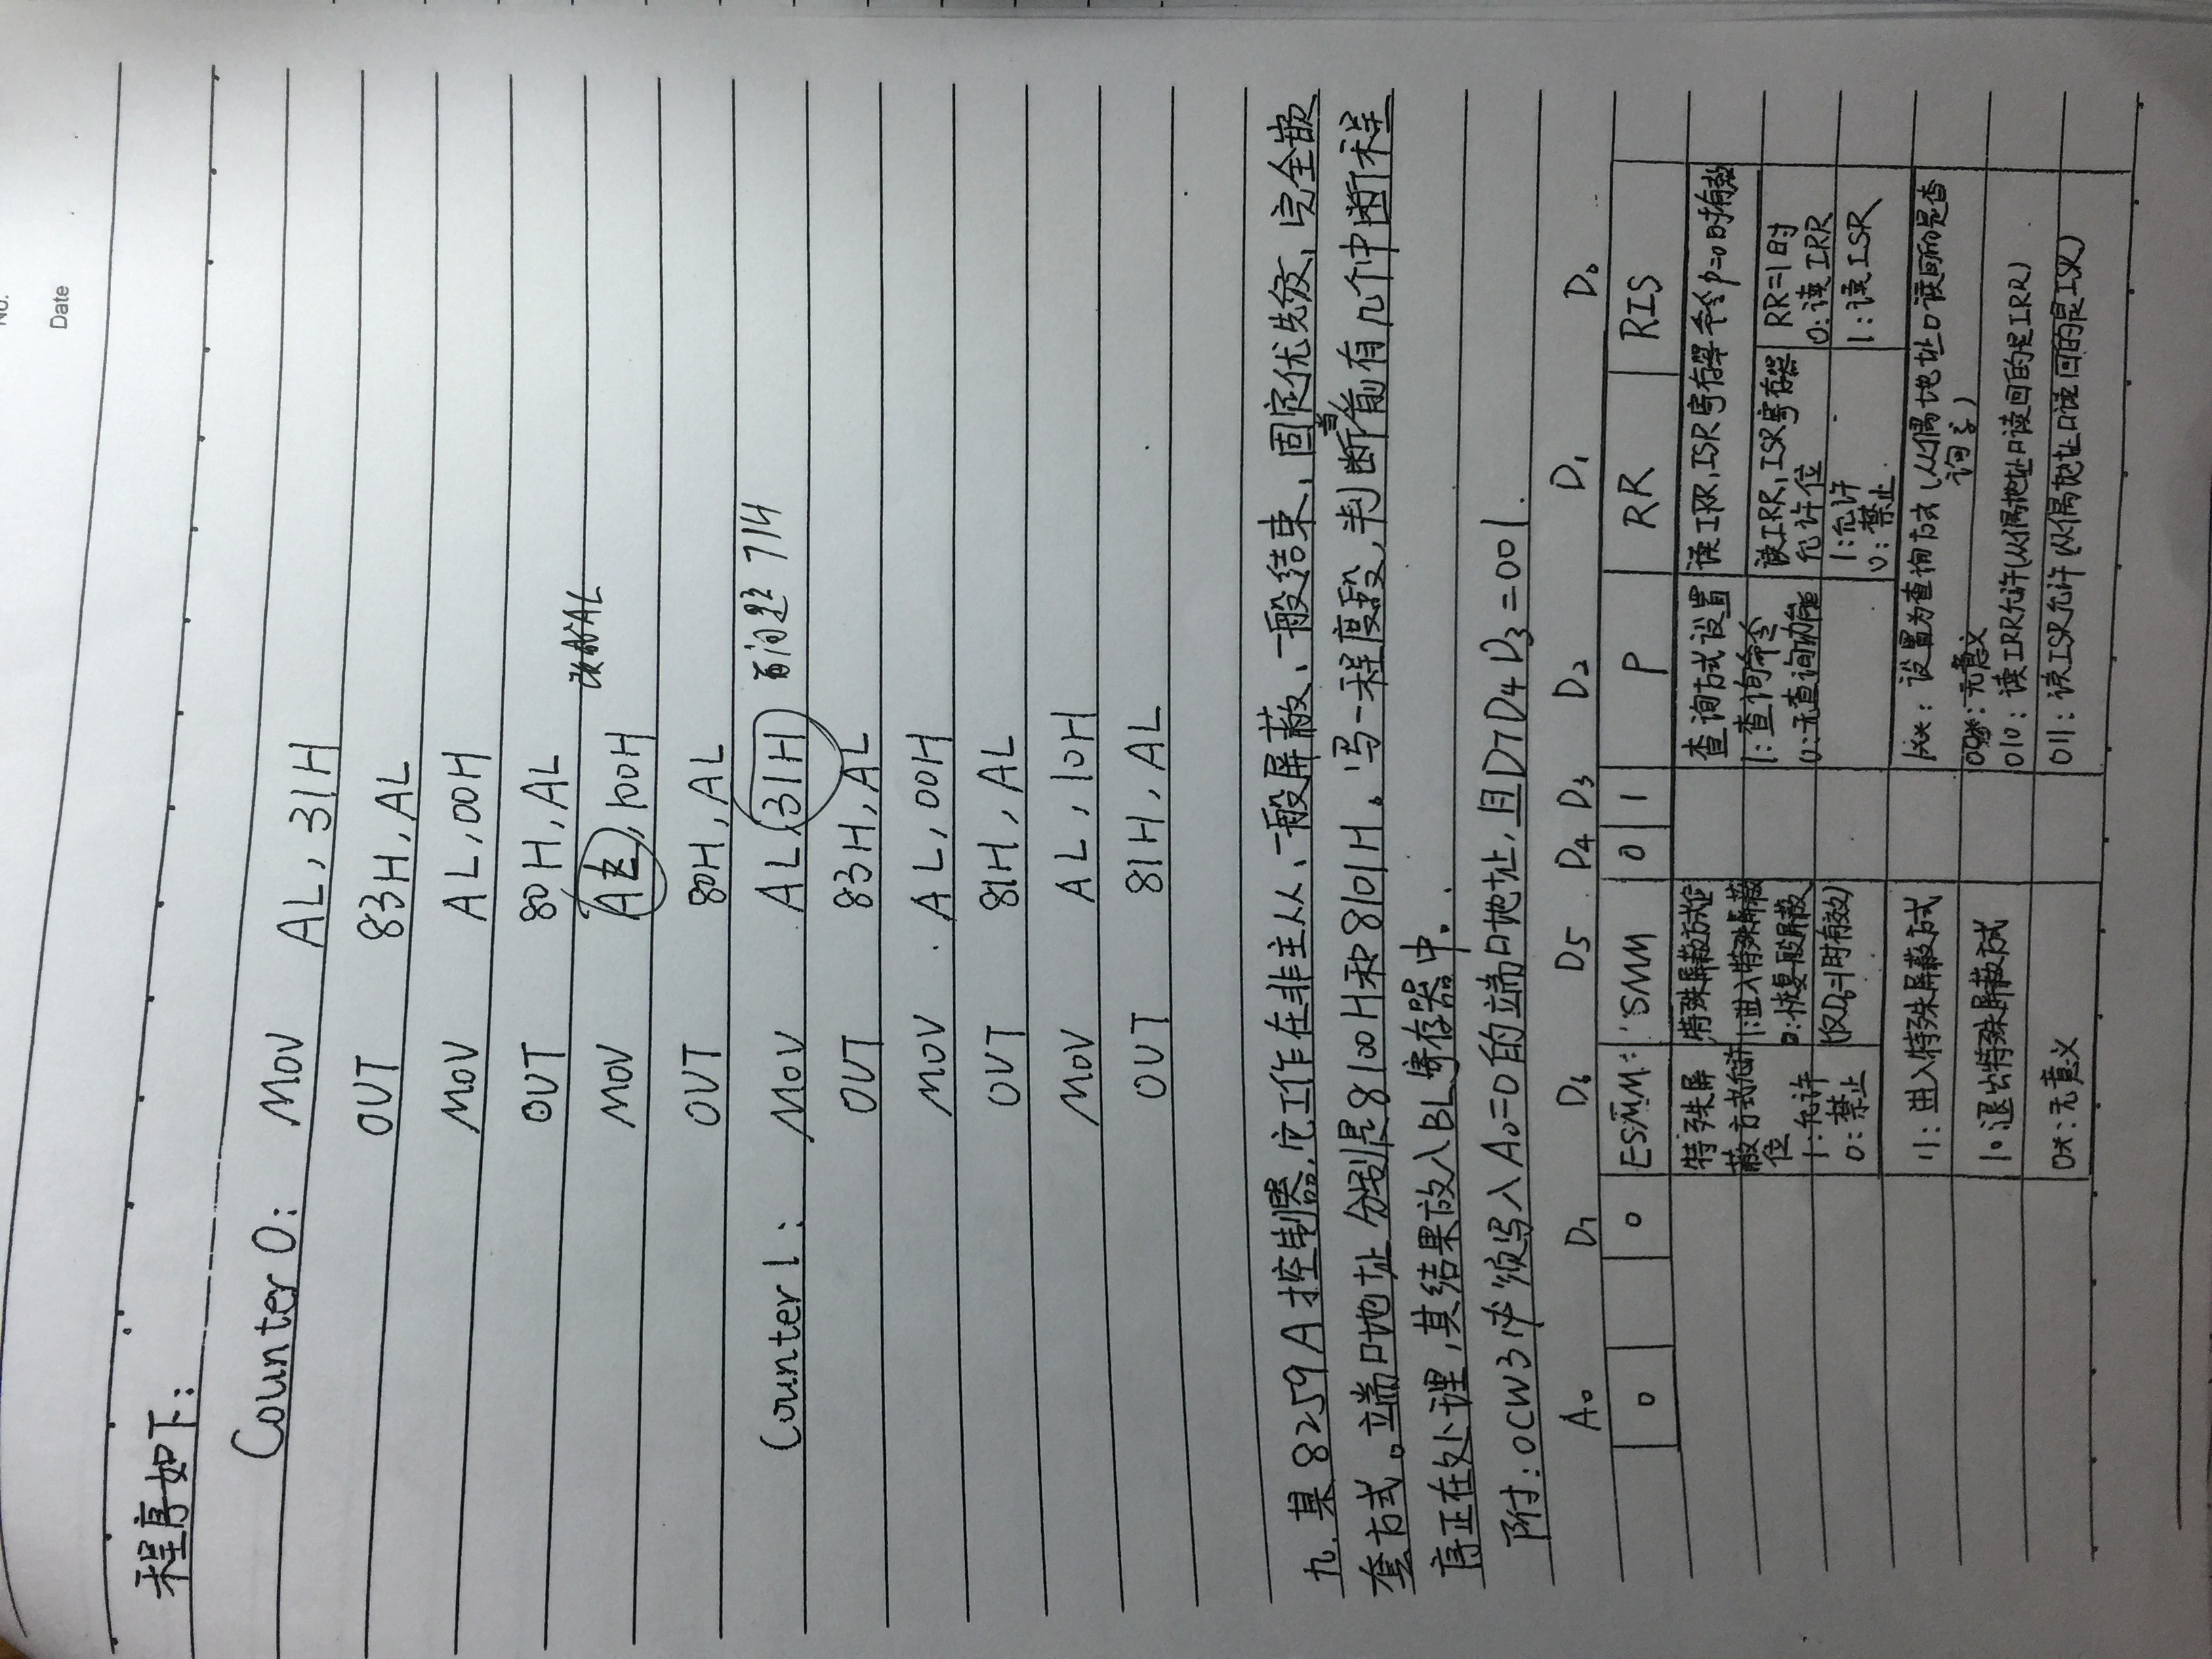 No.
Date
程序如下:
Counter 0: MOV AL, 31H
OUT 83H, AL
MOV AL, 00H
OUT 80H, AL
MOV 100H 改为AL
OUT 80H, AL
Counter 1: MOV AL, 31H 有问题 714
OUT 83H, AL
MOV AL, 00H
OUT 81H, AL
MOV AL, 10H
OUT 81H, AL
九. 某8259A控制器,它工作在非主从、一般屏蔽、一般结束,固定优先级,完全嵌
套方式。端口地址分别是8100H和8101H。写一程度段,判断当前有几个中断程
序正在处理,其结果放入BL寄存器中。
附:OCW3必须写入A0=0的端口地址,且D7D4D3=001.
A0 D7 D6 D5 D4 D3 D2 D1 D0
0 0 ESMM SMM 0 1 P RR RIS
特殊屏 特殊屏蔽方式位 查询方式设置 读IRR,ISR寄存器命令P=0时有效
蔽方式允许 1:进入特殊屏蔽 1:查询命令 读IRR,ISR寄存器 RR=1时
位 0:恢复一般屏蔽 0:无查询功能 允许位 0:读IRR
1:允许 (仅D6=1时有效) 1:允许 1:读ISR
0:禁止 0:禁止
11:进入特殊屏蔽方式 1**:设置为查询方式(从偶地址口读回的是查
询字)
10:退出特殊屏蔽方式 00*:无意义
010:读IRR允许(从偶地址口读回的是IRR)
0*:无意义 011:读ISR允许(从偶地址口读回的是ISR)